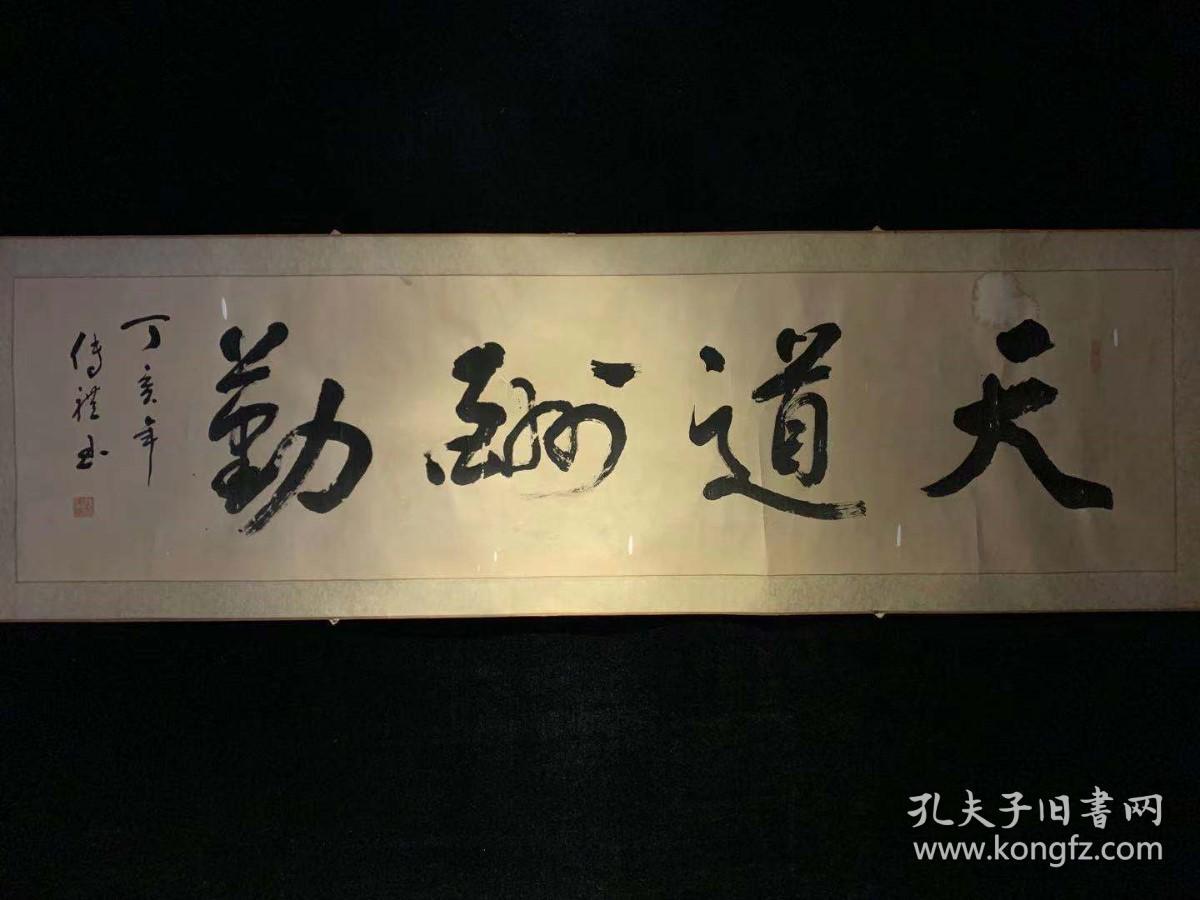 天道酬勤
丁亥年
传礼书
孔夫子旧書网
www.kongfz.com